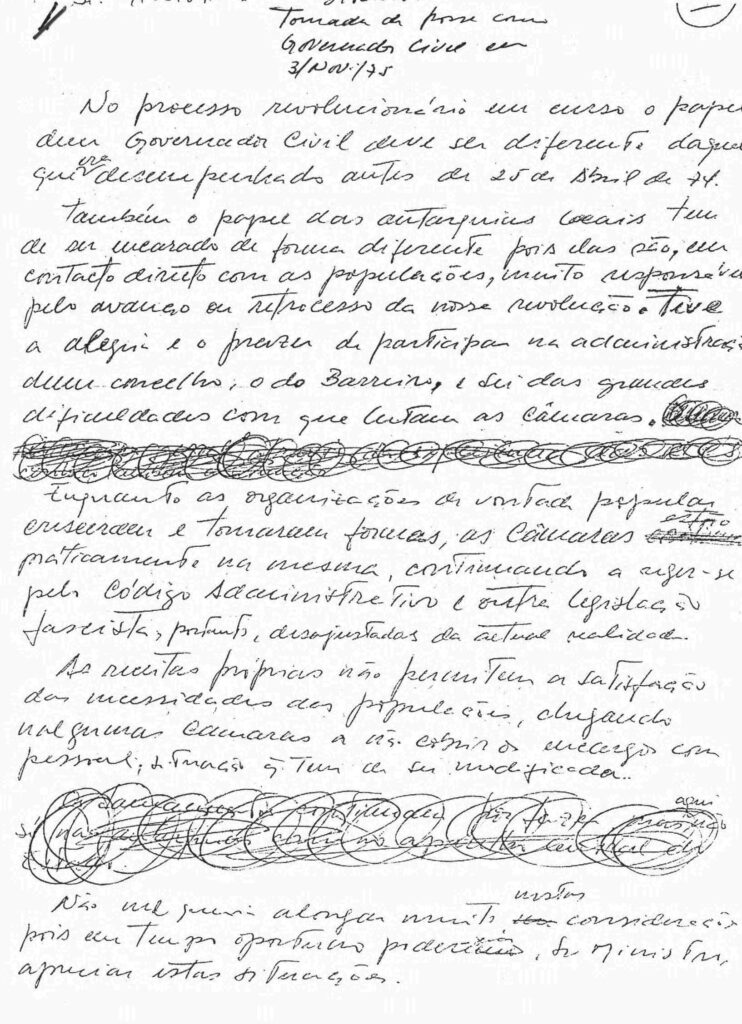 Tomada de posse como
Governador Civil em
3/Nov./75
No processo revolucionário em curso o pape
dum Governador Civil deve ser diferente daque
que era desempenhado antes de 25 de Abril de 74.
Também o papel das autarquias locais tem
de ser encarado de forma diferente pois elas são, em
contacto directo com as populações, muito responsáve
pelo avanço ou retrocesso da nossa revolução. Tive
a alegria e o prazer de participar na administraçã
dum concelho, o do Barreiro, e sei das grandes
dificuldades com que lutam as Câmaras.
Enquanto as organizações de vontade popular
cresceram e tomaram formas, as Câmaras estão
práticamente na mesma, continuando a reger-se
pelo Código Administrativo e outra legislação
fascista, portanto, desajustadas da actual realidade.
As receitas próprias não permitem a satisfação
das necessidades das populações, chegando
nalgumas Câmaras a não cobrir os encargos com
pessoal, situação q̃ tem de ser modificada.
aqui
Não me queria alongar muito nestas consideraçõ
pois em tempo oportuno poderemos, Sr. Ministro,
apreciar estas situações.